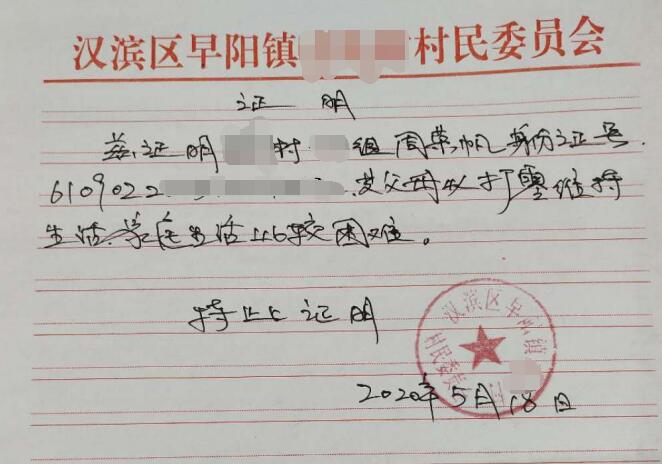 汉滨区早阳镇 村民委员会
证 明
兹证明 村 组周荣帆身份证号
6109022 其父母以打零维持
生活,家庭生活比较困难。
特此证明
汉滨区早阳镇
村民委员
2020年5月18日